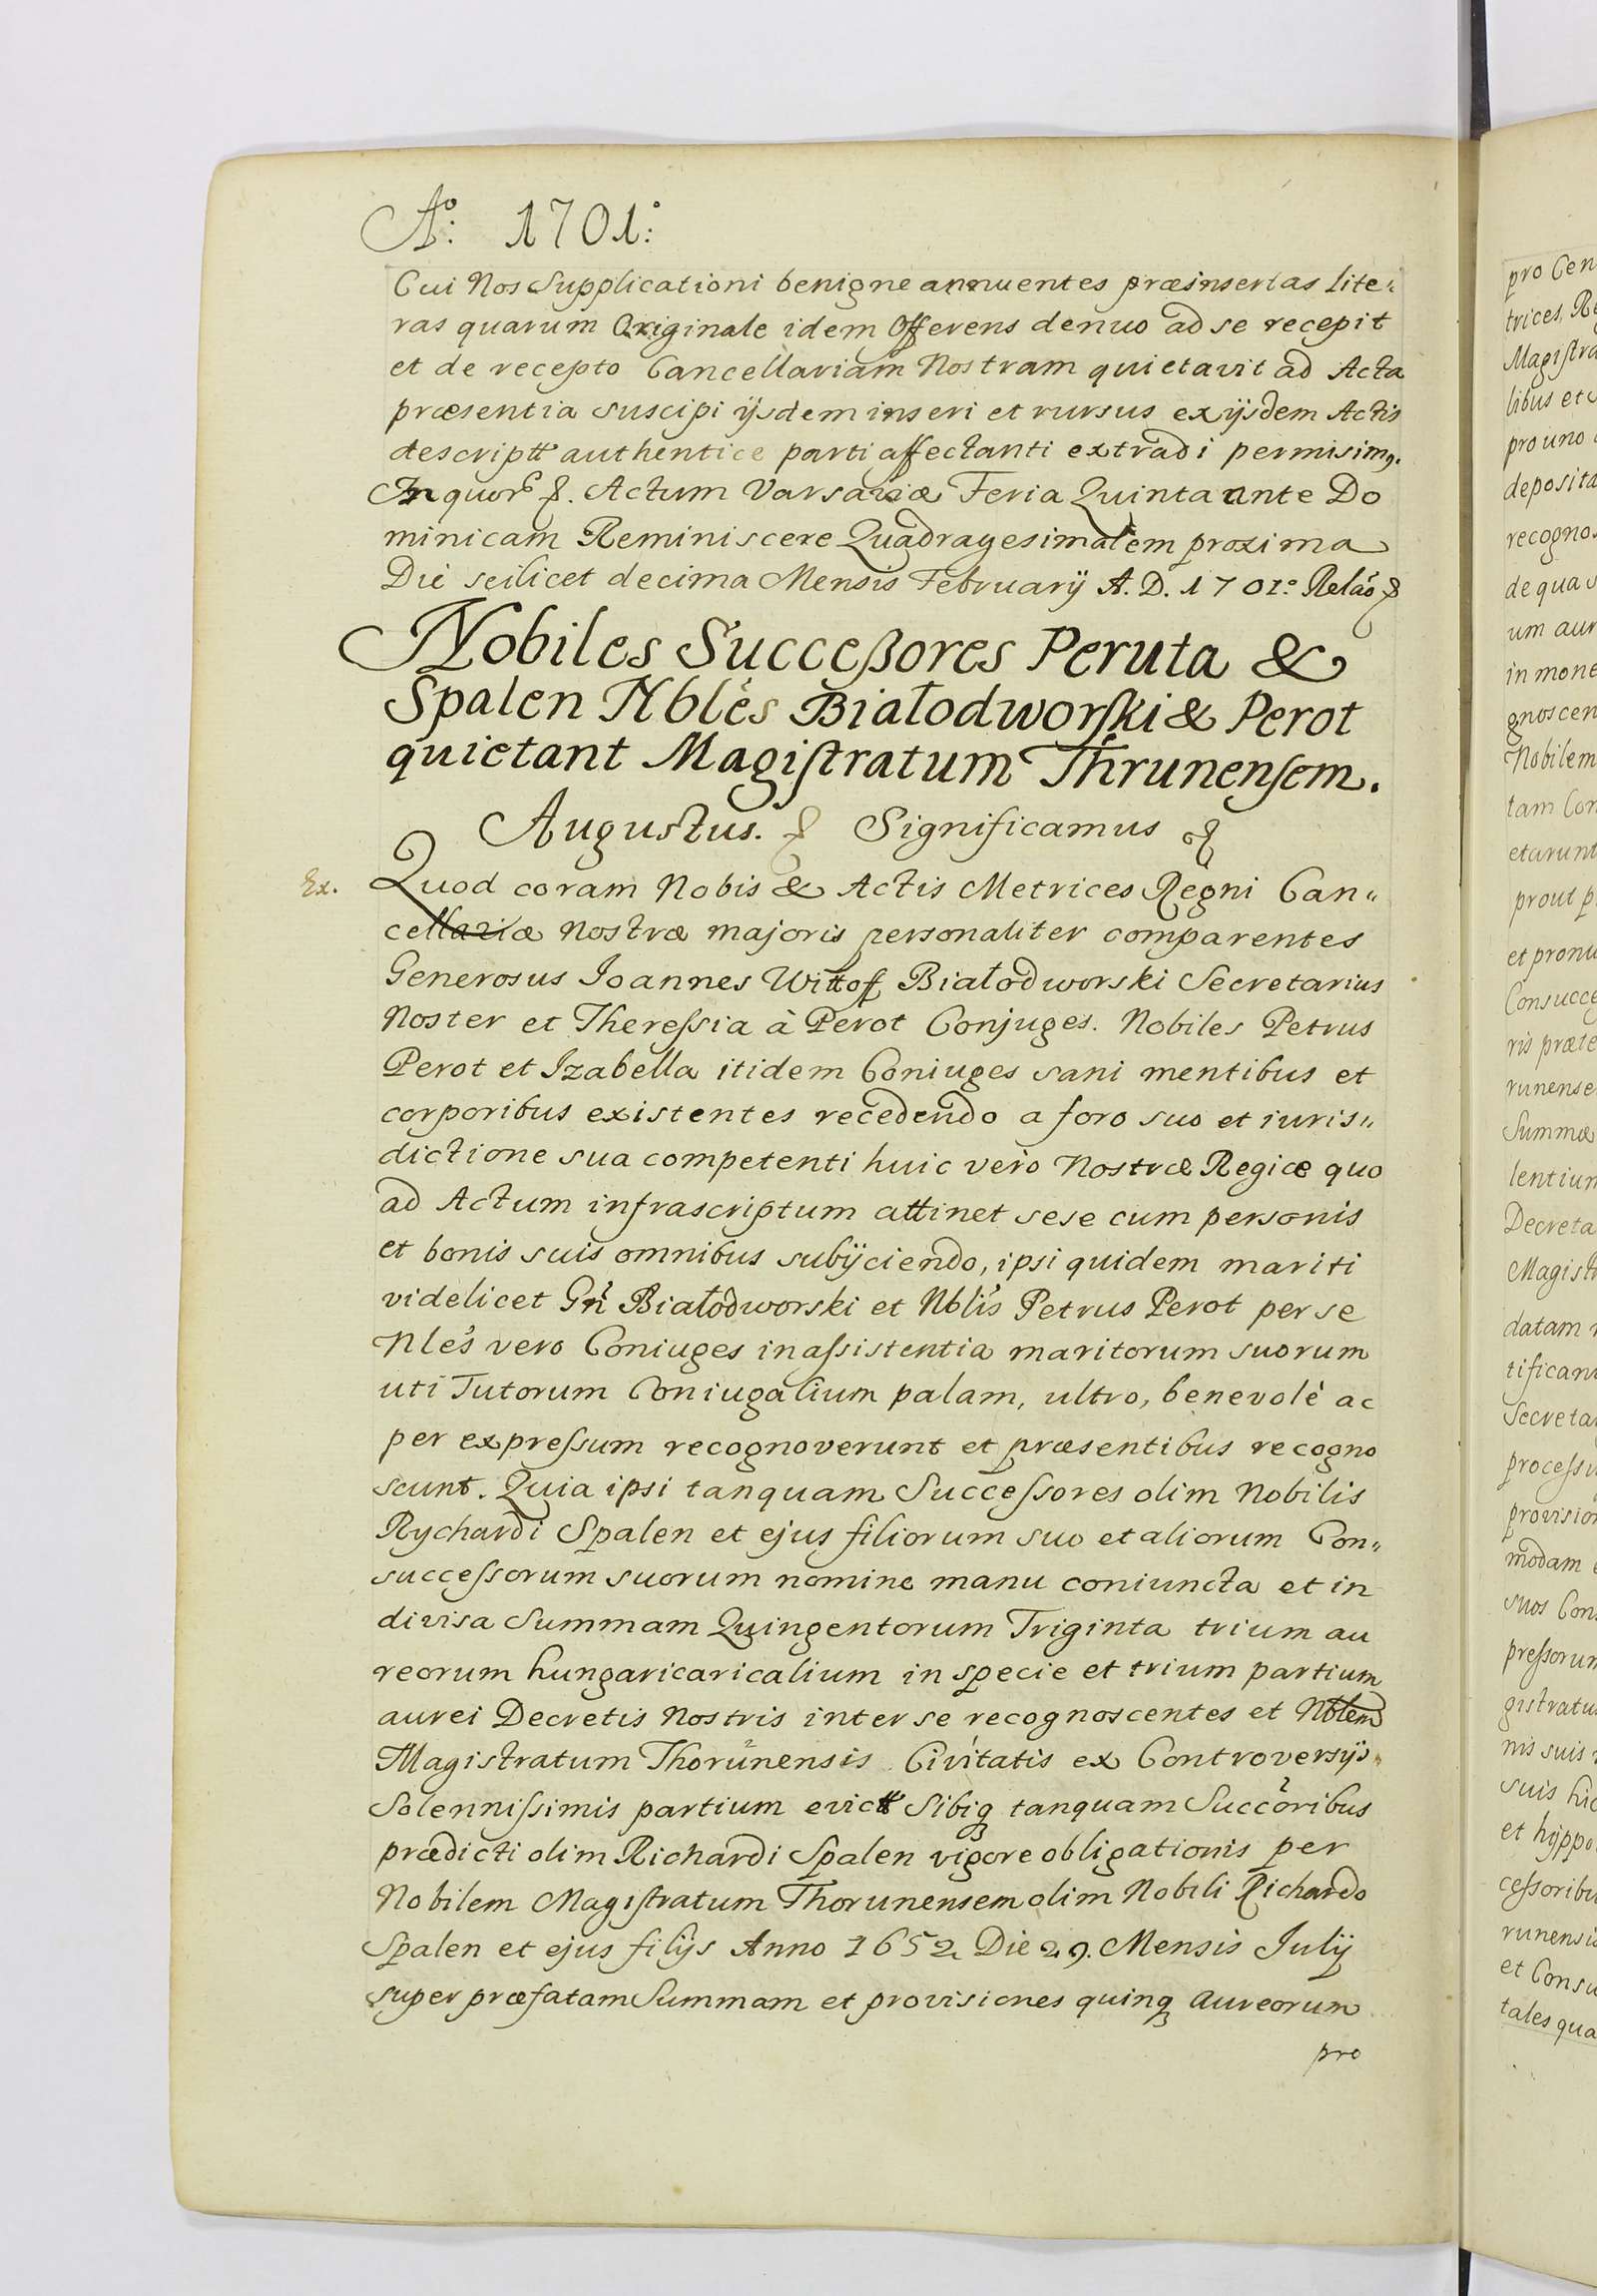 Aº: 1701º:
Cui Nos Supplicationi benigne annuentes præinsertas lite„
ras quarum Originale idem Offerens denuo ad se recepit
et de recepto Cancellariam Nostram quietavit ad Acta
præsentia suscipi ijsdem inseri et rursus ex ijsdem Actis
descriptt authentice parti affectanti extradi permisimq.
In quorẽ &. Actum Varsaviæ Feria Quinta ante Do
minicam Reminiscere Quadragesimalem proxima
Die scilicet decima Mensis February A. D. 1701º Relão &
Nobiles Succeßores Peruta &
Spalen Nblẽs Białodworski & Perot
quietant Magistratum Thrunensem.
Augustus. & Significamus &
Ex.
Quod coram Nobis & Actis Metrices Regni Can„
cellariæ Nostræ majoris personaliter comparentes
Generosus Joannes Wittoff Białodworski Secretarius
Noster et Theressia à Perot Conjuges. Nobiles Petrus
Perot et Izabella itidem Coniuges sani mentibus et
corporibus existentes recedendo a foro suo et iuris„
dictione sua competenti huic verò Nostræ Regiæ quo
ad Actum infrascriptum attinet sese cum personis
et bonis suis omnibus subijciendo, ipsi quidem mariti
videlicet Gñ Białodworski et Nblis Petrus Perot per se
Nles vero Coniuges in assistentia maritorum suorum
uti Tutorum Coniugalium palam, ultro, benevolè ac
per expressum recognoverunt et præsentibus recogno
scunt. Quia ipsi tanquam Successores olim Nobilis
Rychardi Spalen et ejus filiorum suo et aliorum Con„
successorum suorum nomine manu coniuncta et in
divisa Summam Quingentorum Triginta trium au
reorum hungaricaricalium in specie et trium partium
aurei Decretis Nostris inter se recognoscentes et Nblem
Magistratum Thorunensis Civitatis ex Controversijs„
Solennissimis partium evictt Sibiq tanquam Succõribus
prædicti olim Richardi Spalen vigore obligationis per
Nobilem Magistratum Thorunensem olim Nobili Richardo
Spalen et ejus filijs Anno 1652 Die 29. Mensis July
super præfatam Summam et provisiones quinq aureorum
pro
pro Cen
trices, Re
Magistra
libus et
pro uno
deposita
recognos
de qua s
um aur
in mone
gnoscen
Nobilem
tam Con
etarunt
prout p
et pronu
Consucce
ris præte
runense
Summæ
lentium
Decreta
Magistr
datam
tifican
Secreta
processu
provision
modam
suos Con
pressorum
gistratu
nis suis
suis hic
et hyppo
cessoribu
runensis
et Consu
tales qua